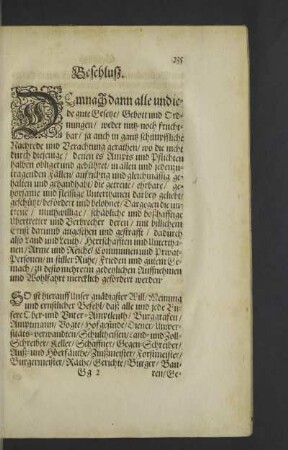 235
Beschluß.
DEmnach dann alle und je-
de gute Gesetze/ Gebott und Ord-
nungen/ weder nutz noch frucht-
bar/ ja auch in gantz schimpffliche
Nachrede und Verachtung gerathen/ wo die nicht
durch diejenige/ denen es Ampts und Pflichten
halben obliget und gebühret/ in allen und jeden zu-
tragenden Fällen/ auffrichtig und gleichmässig ge-
halten und gehandhabt/ die getreue/ ehrbare/ ge-
horsame und fleissige Unterthanen darbey geliebt/
geschützt/ befördert und belohnet/ Dargegen die un-
treue/ muthwillige/ schädliche und boßhafftige
Ubertretter und Verbrecher deren/ mit billichem
Ernst darumb angesehen und gestrafft/ dadurch
also Land und Leuth/ Herrschafften und Untertha-
nen/ Arme und Reiche/ Communen und Privat-
Personen/ in stiller Ruhe/ Frieden und gutem Ge-
mach/ zu desto mehrerm gedeylichen Auffnehmen
und Wohlfahrt mercklich gefördert werden:
SO ist hierauff Unser gnädigster Will/ Meinung
und ernstlicher Befehl/ daß alle und jede Un-
sere Ober- und Unter-Amptleuth/ Burggrafen/
Amptmann/ Vögte/ Hofgesinde/ Diener/ Univer-
sitäts-verwandten/ Schultheissen/ Land- und Zoll-
Schreiber/ Keller/ Schaffner/ Gegen-Schreiber/
Auß- und Oberfauthe/ Zinßmeister/ Forstmeister/
Burgermeister/ Räthe/ Gerichte/ Burger/ Bau-
Gg 2 ren/ Ge-